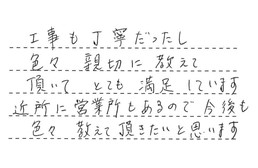 工事も丁寧だったし
色々 親切に 教えて
頂いて とても 満足しています
近所に営業所もあるので今後も
色々 教えて頂きたいと思います